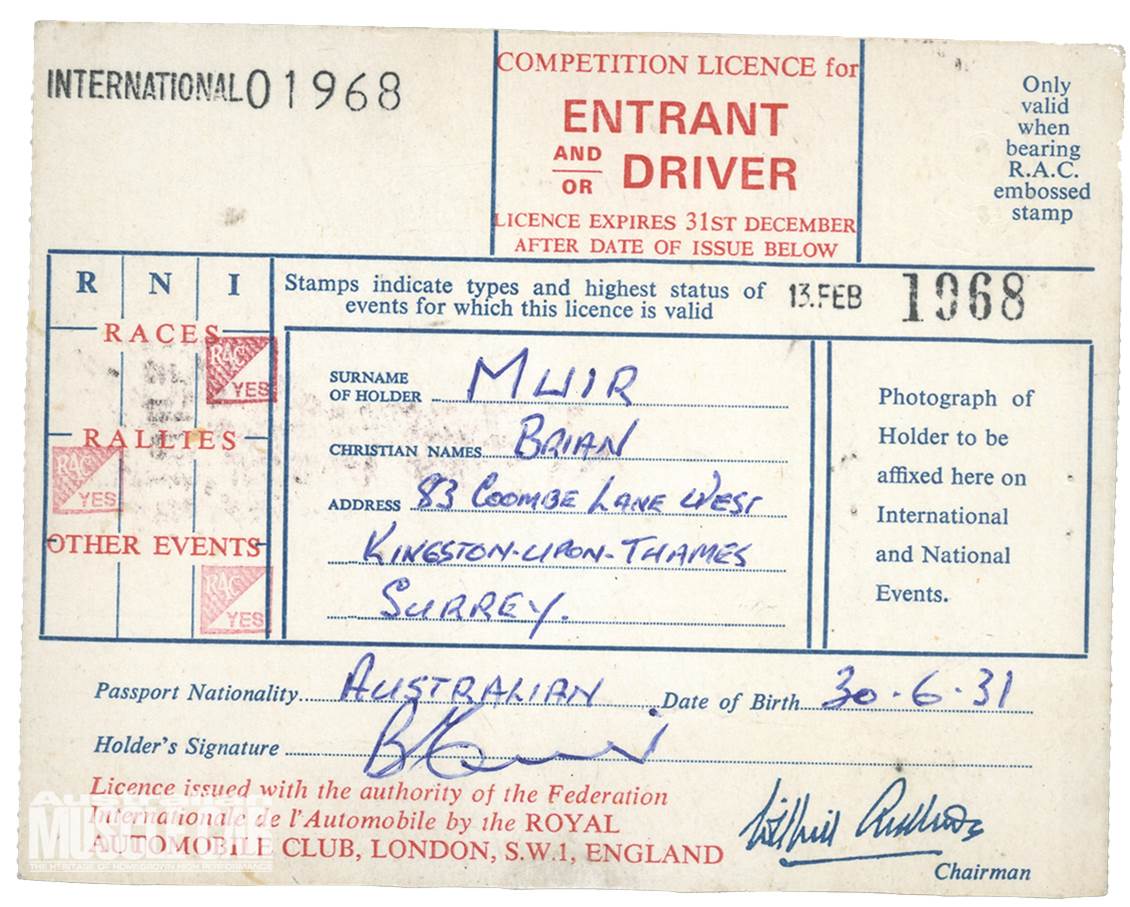 INTERNATIONAL 01968
COMPETITION LICENCE for
ENTRANT
AND
OR
DRIVER
LICENCE EXPIRES 31ST DECEMBER
AFTER DATE OF ISSUE BELOW
Only
valid
when
bearing
R.A.C.
embossed
stamp
R N I
RACES
RAC YES
RALLIES
RAC YES
OTHER EVENTS
RAC YES
Stamps indicate types and highest status of
events for which this licence is valid
13.FEB 1968
SURNAME
OF HOLDER MUIR
CHRISTIAN NAMES BRIAN
ADDRESS 83 COOMBE LANE WEST
KINGSTON-UPON-THAMES
SURREY.
Photograph of
Holder to be
affixed here on
International
and National
Events.
Passport Nationality AUSTRALIAN Date of Birth 30.6.31
Holder's Signature
Licence issued with the authority of the Federation
Internationale de l'Automobile by the ROYAL
AUTOMOBILE CLUB, LONDON, S.W.1, ENGLAND
Chairman
Australian
MUSCLE CAR
THE HERITAGE OF HOMEGROWN HIGH PERFORMANCE